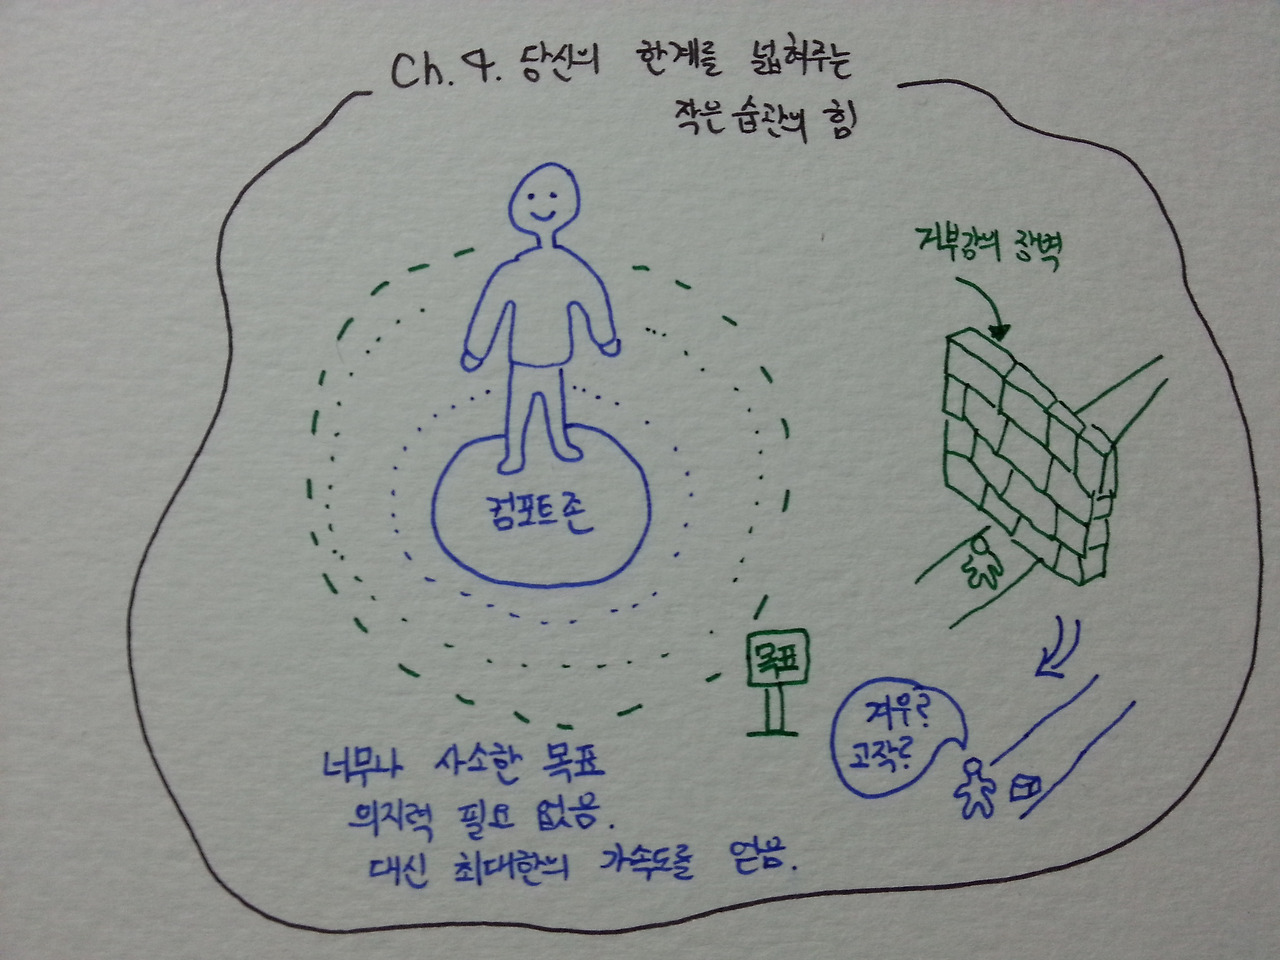 Ch. 4. 당신의 한계를 넓혀주는
작은 습관의 힘
거부감의 장벽
컴포트존
목표
겨우?
고작?
너무나 사소한 목표
의지력 필요 없음.
대신 최대한의 가속도를 얻음.